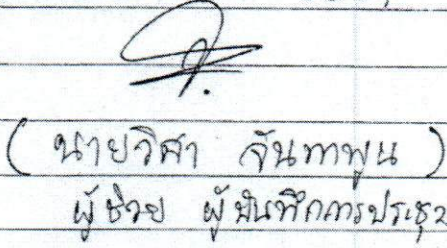 ( นายวิศา จันทาพูน )
ผู้ช่วย ผู้บันทึกการประชุม